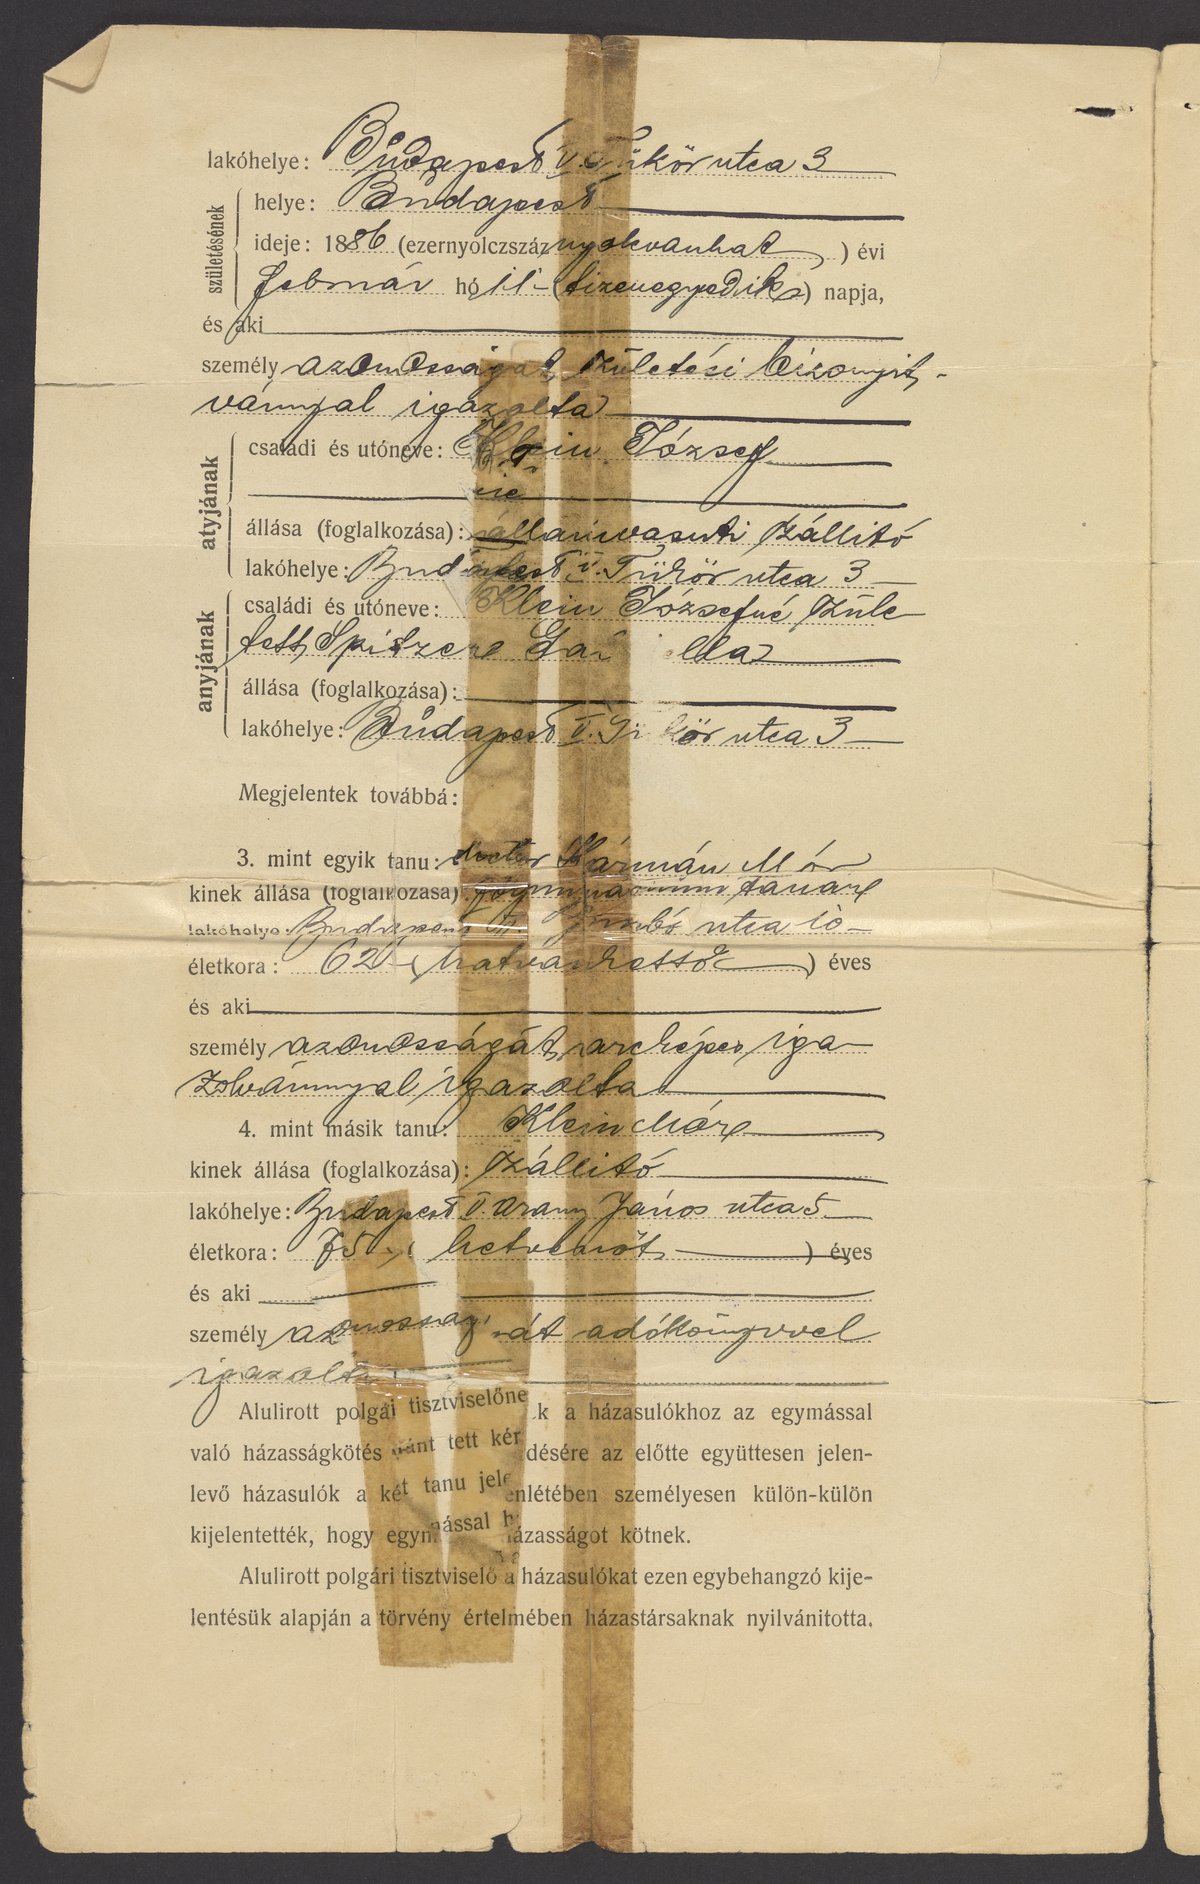 lakóhelye: Budapest V. Tükör utca 3
születésének
helye: Budapest
ideje: 1886 (ezernyolczszáznyolcvanhat) évi
február hó 11 (tizenegyedik) napja,
és aki
személyazonosságát születési bizonyit-
vánnyal igazolta
atyjának
családi és utóneve: Klein József
állása (foglalkozása): államvasuti szállitó
lakóhelye: Budapest V. Tükör utca 3
anyjának
családi és utóneve: Klein Józsefné szüle
tett Spitzer
állása (foglalkozása):
lakóhelye: Budapest V. Tükör utca 3
Megjelentek továbbá:
3. mint egyik tanu: doctor Kármán Mór
kinek állása (foglalkozása): főgymnasiumi tanár
lakóhelye: Budapest utca 10
életkora: 62 (hatvankettő) éves
és aki
személyazonosságát arcképes iga
zolvánnyal igazolta
4. mint másik tanu: Klein Mór
kinek állása (foglalkozása): szállitó
lakóhelye: Budapest V. Arany János utca 5
életkora: 75 (hetvenöt) éves
és aki
személyazonosságát adókönyvvel
igazolta
Alulirott polgári tisztviselőnek a házasulókhoz az egymással
való házasságkötés iránt tett kérdésére az előtte együttesen jelen-
levő házasulók a két tanu jelenlétében személyesen külön-külön
kijelentették, hogy egymással házasságot kötnek.
Alulirott polgári tisztviselő a házasulókat ezen egybehangzó kije-
lentésük alapján a törvény értelmében házastársaknak nyilvánitotta.